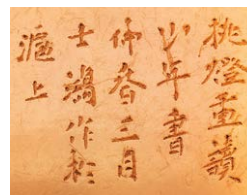 挑燈重讀
少年書
仲春三月
士作於
滬上